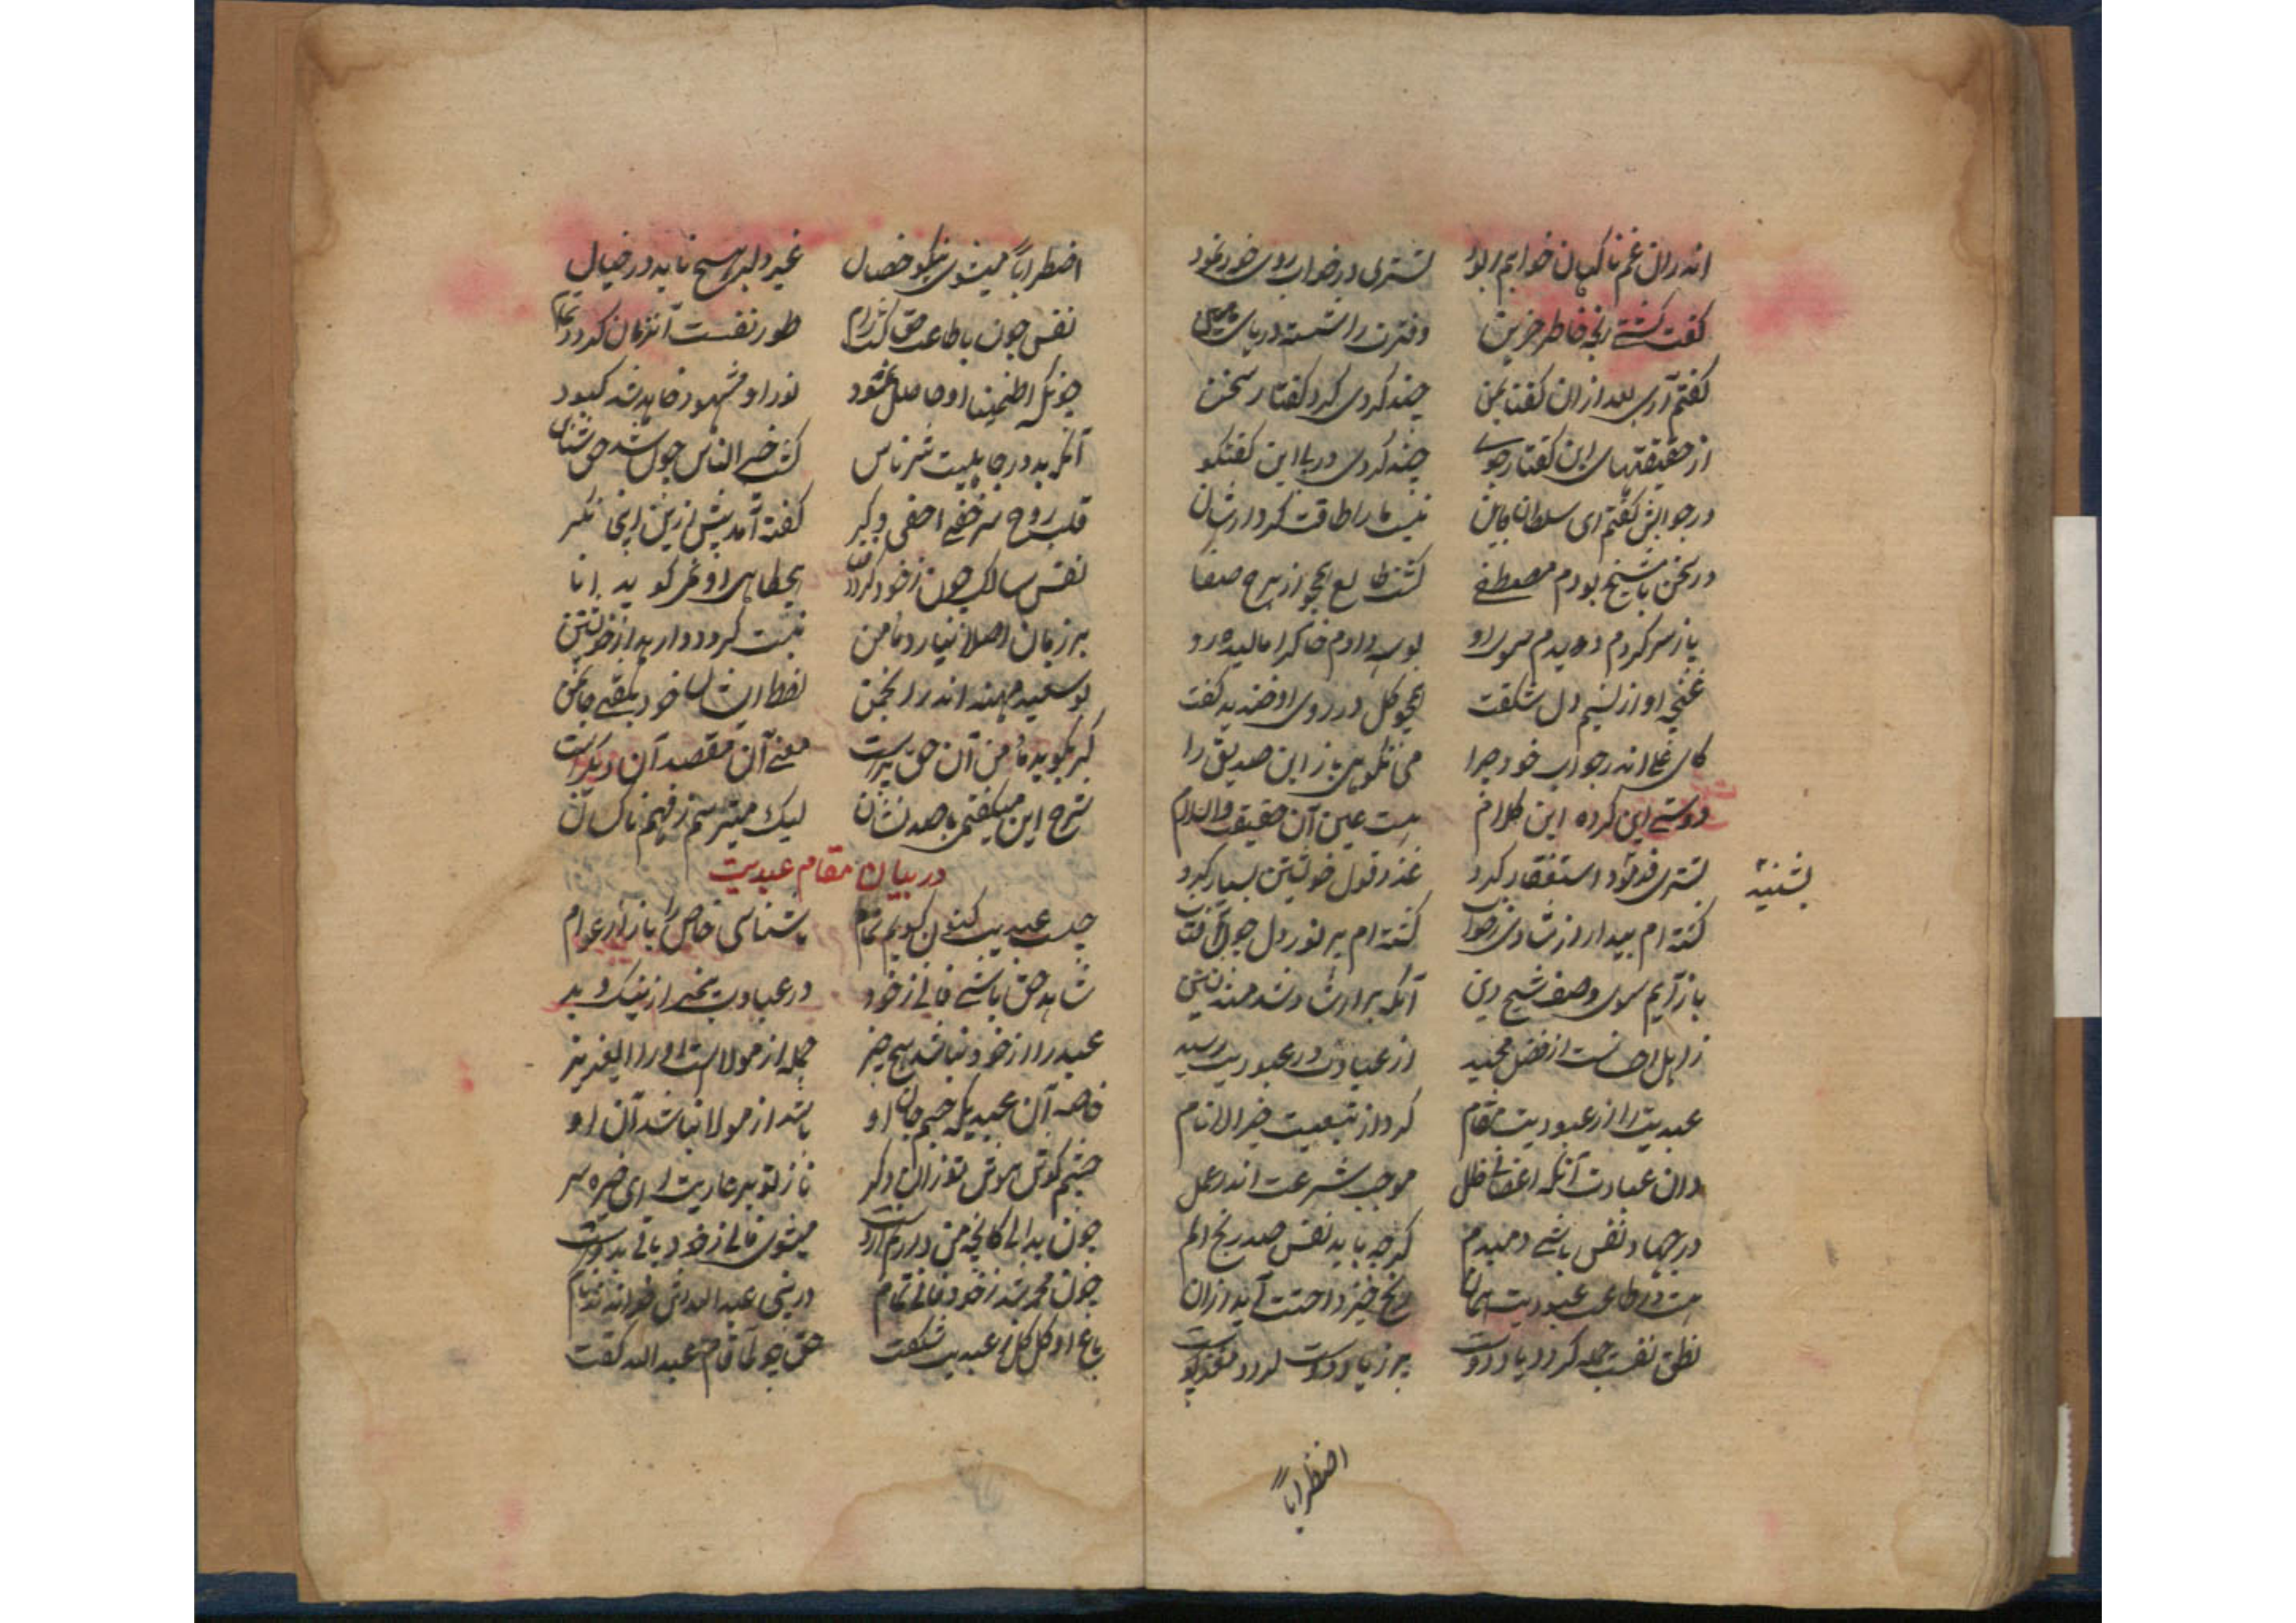 اندران غم ناکهان خوابم ربود تشتری در خواب روی خود نمود
کفت کشتی رنجه خاطر حزین دفترت را شسته دریای
کفتم آری بعد ازان کفتا بمن چند کردی کرد کفتار سخن
از حقیقتهای این کفتار جوی چند کردی دریا این کفتکو
در جوابش کفتم ای سلطان نیست ما را طاقت کردارشان
در سخن با شیخ بودم مصطفی کشت طالع همچو از برج صفا
باز سر کردم دویدم سوی او بوسه دادم خاکرا مالیده رو
غنچه او از نسیم دل شکفت همچو کل در روی او خندید کفت
کای غلا اندر جواب خود چرا می نکویی باز این صدیق را
دوستی این کرده این کلام هست عین آن حقیقت والسلام
تشتری فرمود استغفار کرد عذر قول خویشتن بسیار کرد
بشنید
کشته ام بیدار از شادی ز خواب کشته ام پر نور دل چون آفتاب
باز آیم سوی وصف شیخ دین آنکه بر ارشاد شد مسند نشین
ز اهل احسانست از فضل مجید از عبادت در عبودیت رسید
عبدیت را از عبودیت مقام کرد از تبعیت خیر الانام
دان عبادت آنکه اعضا بی خلل موجب شرعت اندر عمل
در جهاد نفس باشی دمبدم کرچه باید نفس صد رنج و الم
هست در طاعت عبودیت همان رنج خیزد راحتت آید ازان
نطق نفست جمله کردد یاد دوست
اضطراباً
اضطراباً میشوی نیکو خصال غیر دلبر هیچ ناید در خیال
نفس چون با طاعت حق کشت رام طور نفست آنزمان کردد تمام
چونکه اطمینان او حاصل شود نور او مشهود خواهد شد کبود
آنکه بد در جاهلیت شر ناس کشت خیر الناس چون شد حق شناس
قلب روح سر خفی اخفی دکر کفته آمد پیش ازین اینجا نکر
نفس سالک چون ز خود کردد یخطاهی او غیر کوید انا
هر زمان اصلا نیارد ما و من نیست کردد وارهد از خویشتن
بو سعید مهنه اندر انجمن
کبر بکوید ما و من آن حق پرست معنی آن مقصد آن دیکرست
شرح این میکفتمی با صد نشان لیک میترسم ز فهم ناکسان
در بیان مقام عبدیت
چیست عبدیت کنون کویم تمام تا شناسی خاص را باز از عوام
شاهد حق باشی فانی ز خود در عبادت بیخبر از نیک و بد
عبد را از خود نباشد هیچ چیز جمله از مولاست او را ای عزیز
خاصه آن عبدیکه جسم جان او باشد از مولا نباشد آن او
چشم کوش هوش تو زان دکر ناز تو بر عاریت ای خیره سر
چون بدانی کانچه من دارم ازوست میشوی فانی ز خود باقی بدوست
چون محمد شد ز خود فانی تمام در نبی عبد اللهش خواندند نام
باغ او کل کل عبدیت شکفت حق چو لما قام عبد الله کفت